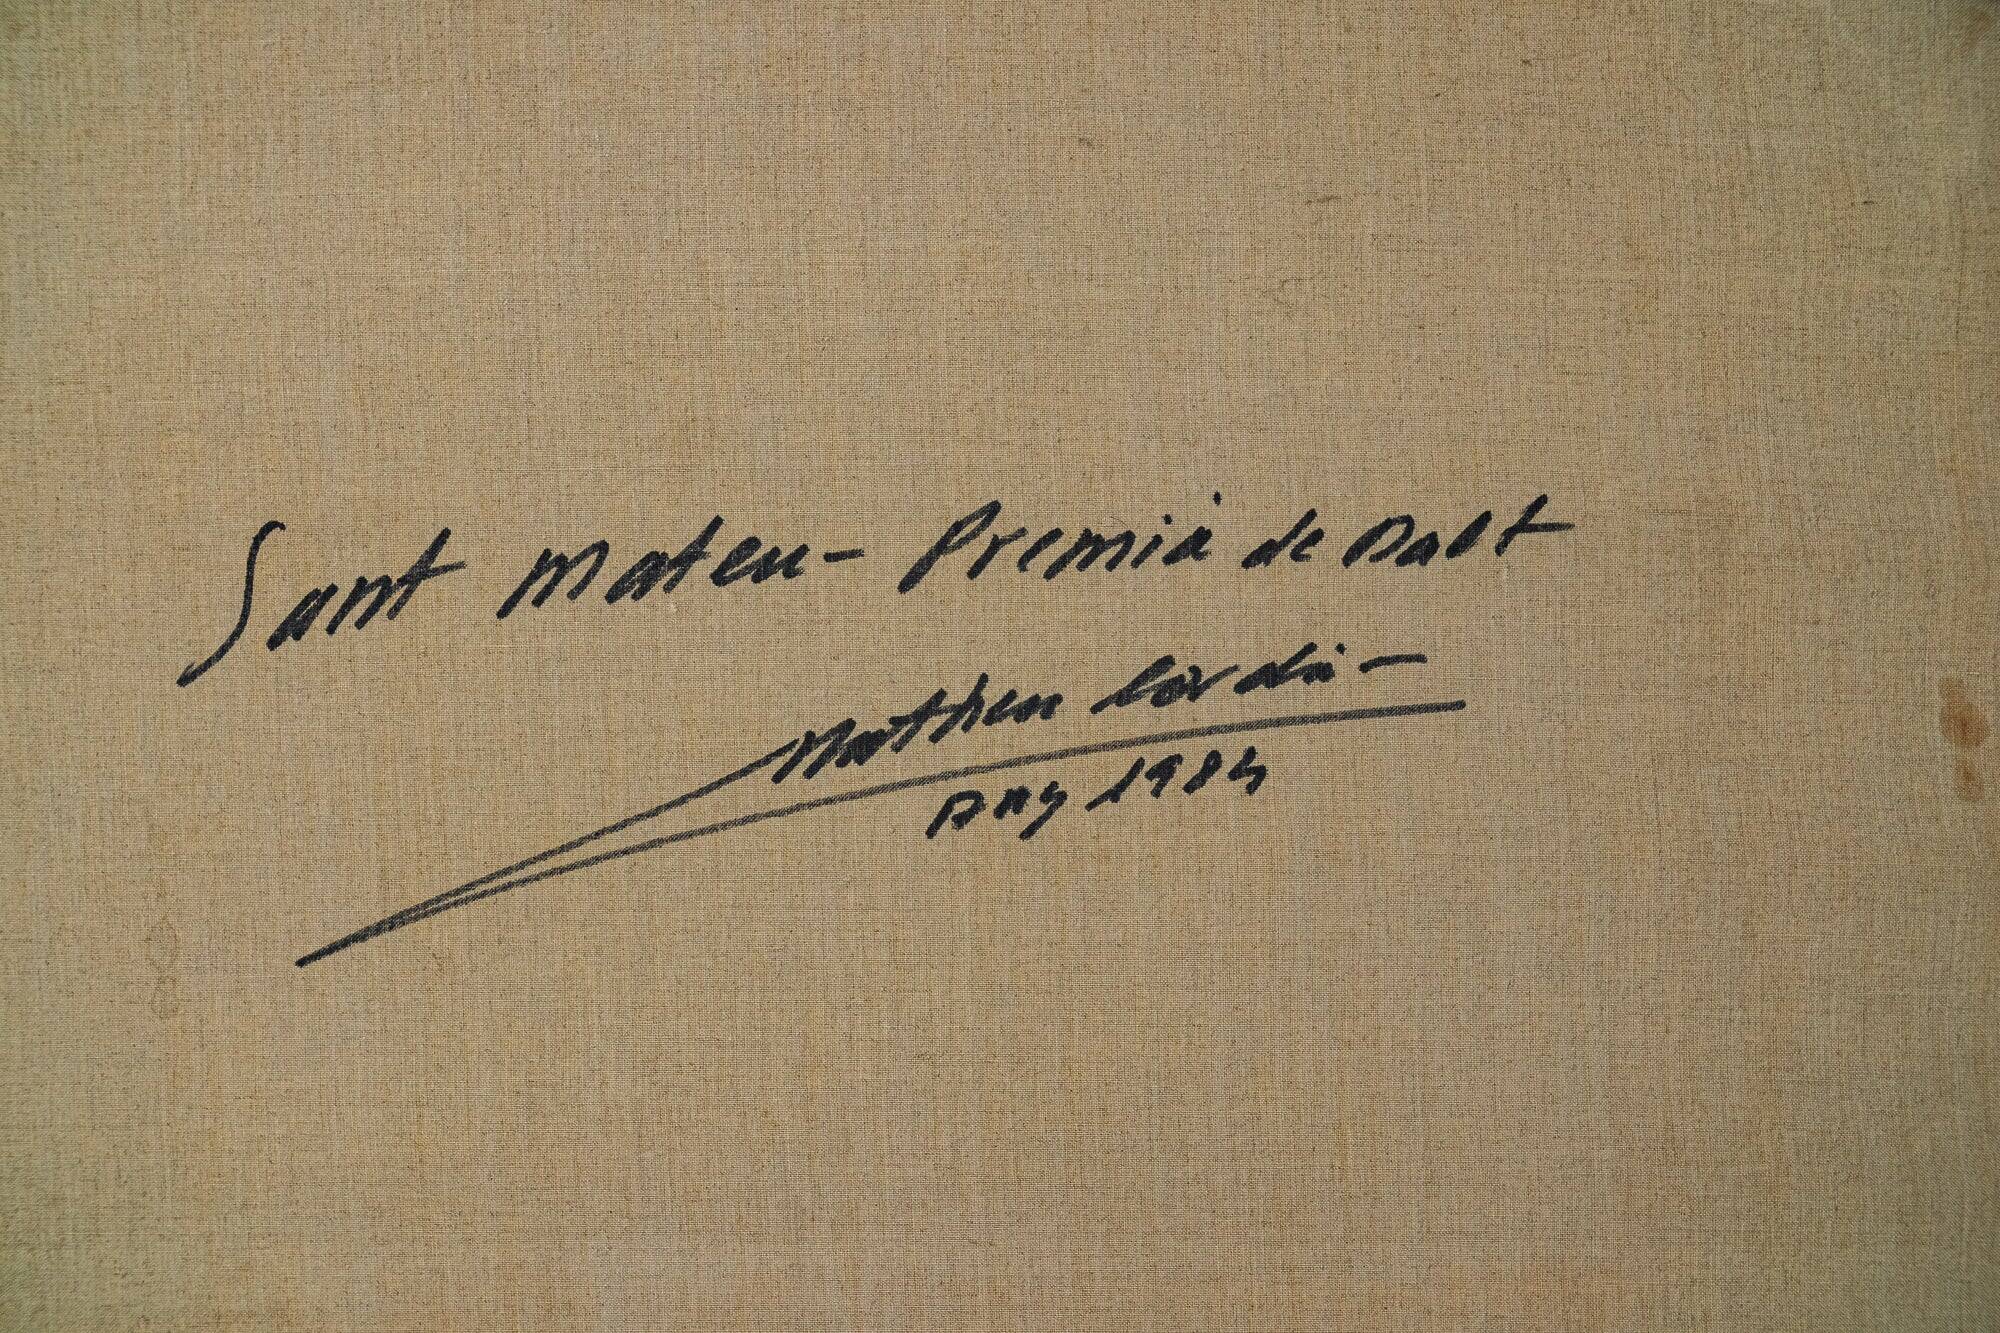 Sant Mateu - Premià de Dalt
Matheu Cordà -
Any 1984